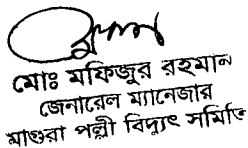 মোঃ মফিজুর রহমান
জেনারেল ম্যানেজার
মাগুরা পল্লী বিদ্যুৎ সমিতি